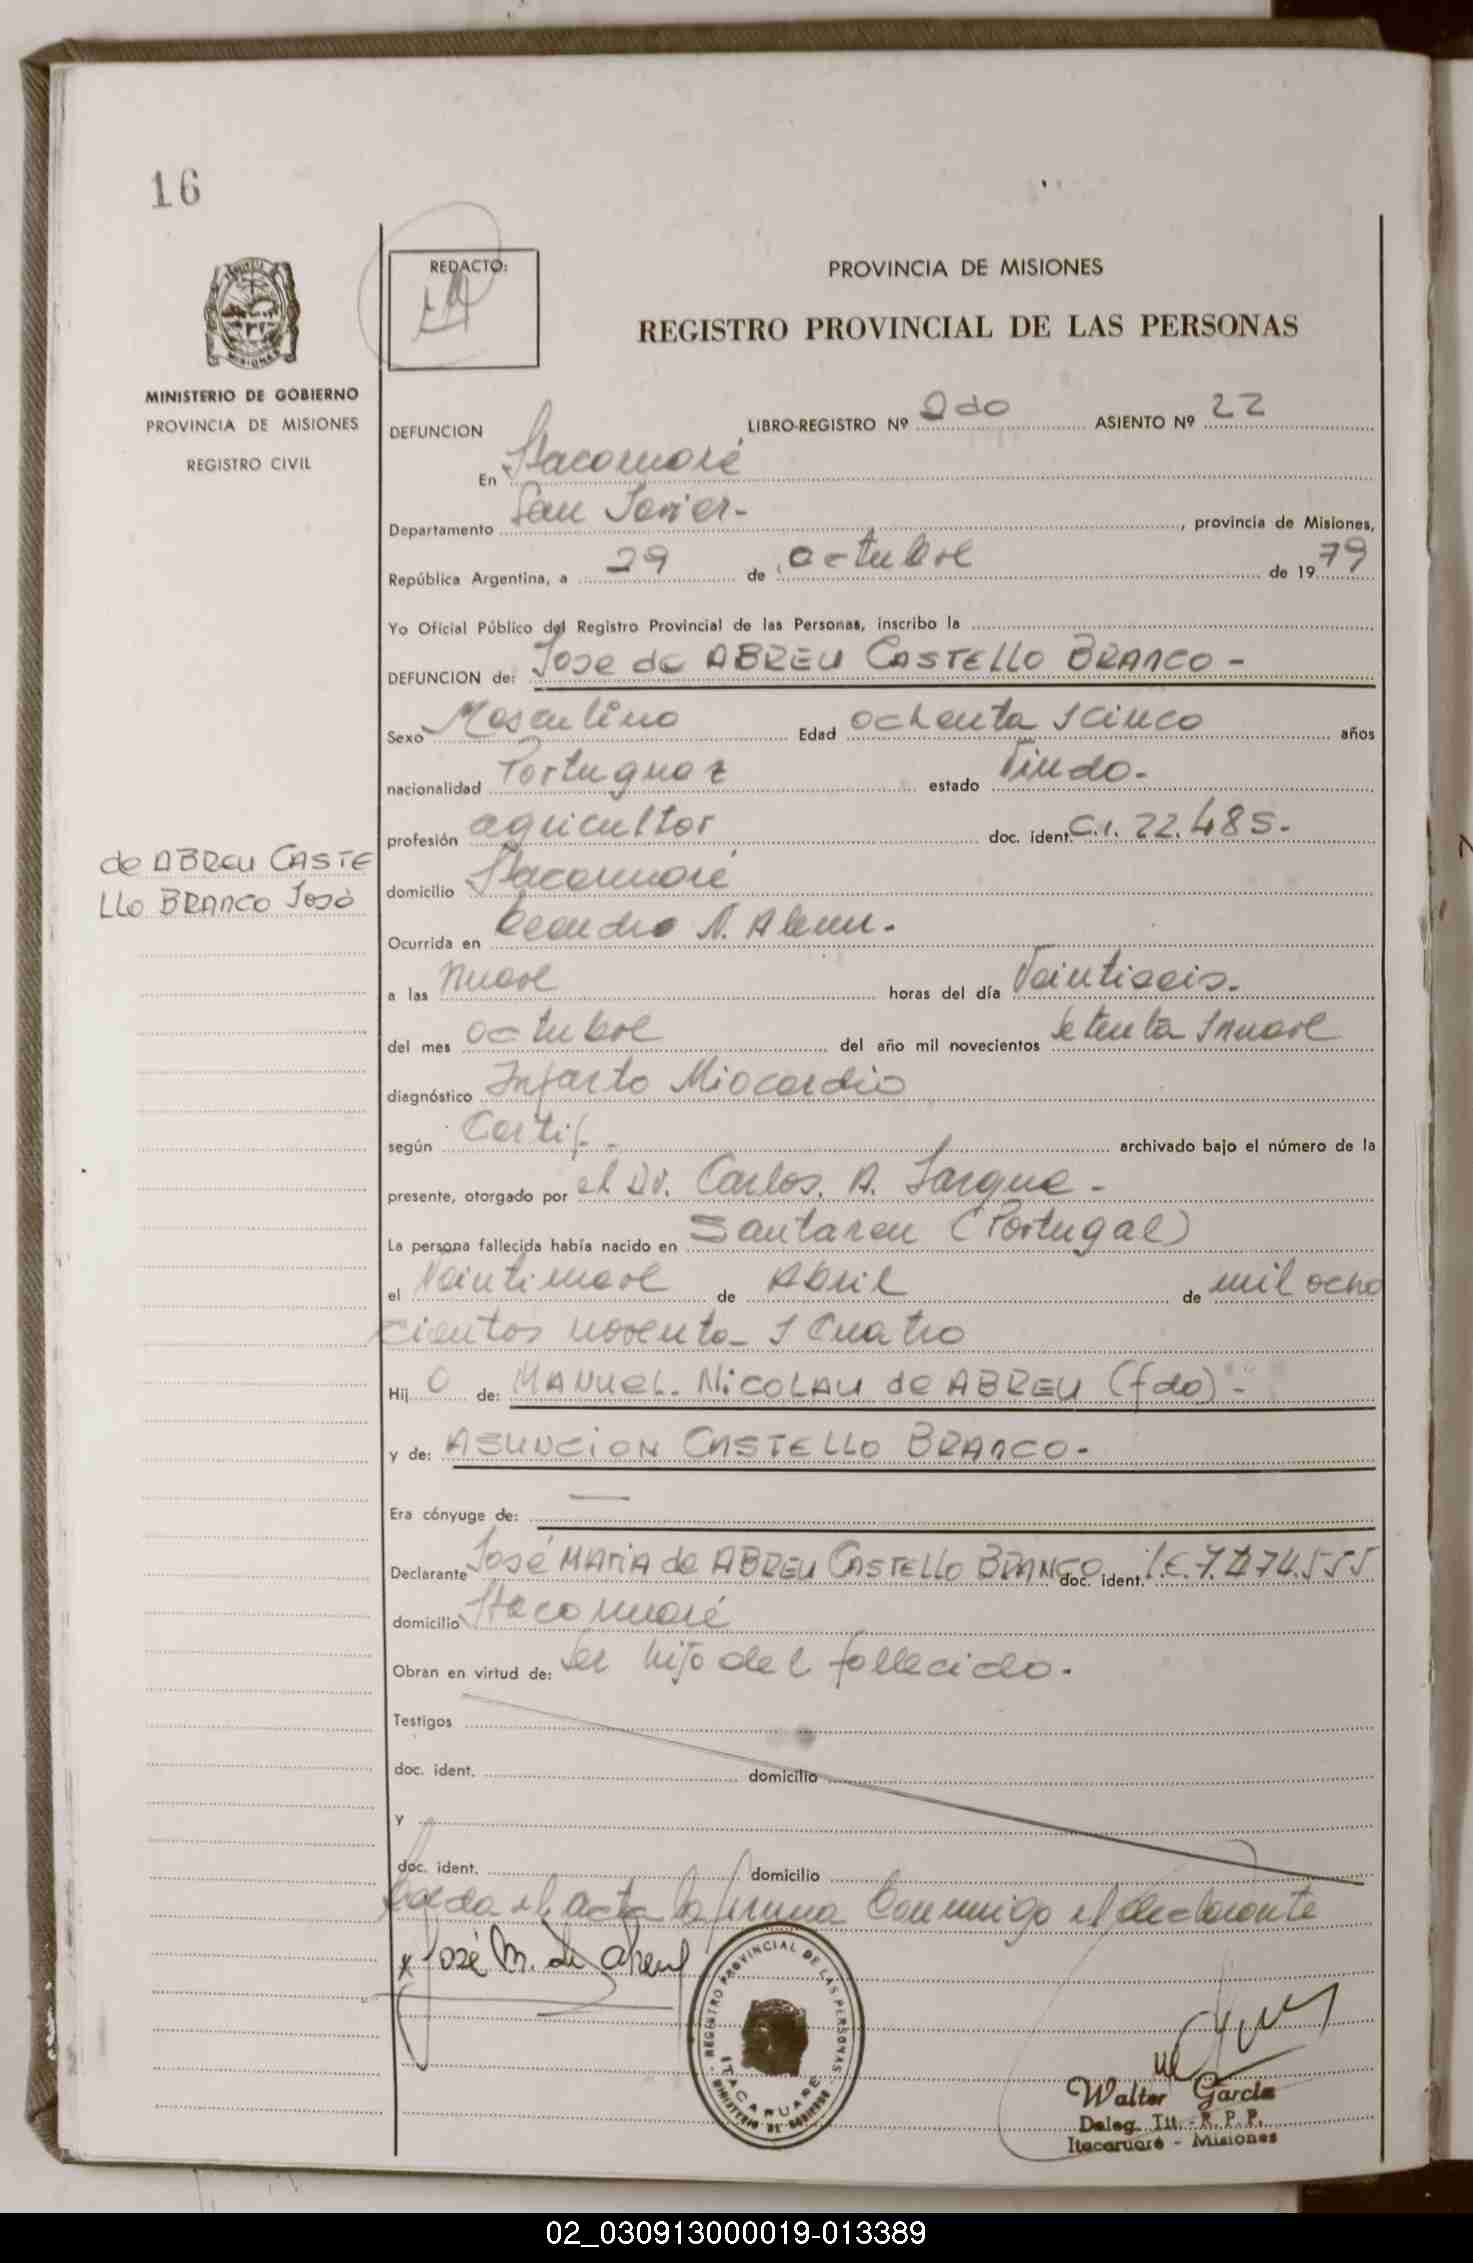 16
REDACTO:
PROVINCIA DE MISIONES
REGISTRO PROVINCIAL DE LAS PERSONAS
MISIONES
MINISTERIO DE GOBIERNO
PROVINCIA DE MISIONES
REGISTRO CIVIL
DEFUNCION LIBRO-REGISTRO Nº 2do ASIENTO Nº 22
En Itacaruaré
Departamento San Javier- , provincia de Misiones,
República Argentina, a 29 de octubre de 1979
Yo Oficial Público del Registro Provincial de las Personas, inscribo la
DEFUNCION de: Jose de ABREU CASTELLO BRANCO -
Sexo Masculino Edad ochenta y cinco años
nacionalidad Portuguez estado Viudo-
profesión agricultor doc. ident. C.I. 22.485-
de ABREU CASTE
LLO BRANCO José
domicilio Itacaruaré
Ocurrida en Leandro N. Alem-
a las nueve horas del día Veintiseis-
del mes octubre del año mil novecientos setenta y nueve
diagnóstico Infarto Miocardio
según Certif.- archivado bajo el número de la
presente, otorgado por el Dr. Carlos. A. -
La persona fallecida había nacido en Santaren (Portugal)
el Veintinueve de Abril de mil ocho
cientos noventa y cuatro
Hij o de: MANUEL. NICOLAU de ABREU (fdo) -
y de: ASUNCION CASTELLO BRANCO-
Era cónyuge de: —
Declarante José MARIA de ABREU CASTELLO BRANCO doc. ident. L.E.
domicilio Itacaruaré
Obran en virtud de: ser hijo del fallecido-
Testigos
doc. ident. domicilio
y
doc. ident. domicilio
Leida el acta la firma conmigo el declarante
x José M. de Abreu
REGISTRO PROVINCIAL DE LAS PERSONAS
ITACARUARE
MINISTERIO DE GOBIERNO
Walter García
Deleg. Tit. - R. P. P.
Itacaruaré - Misiones
02_030913000019-013389